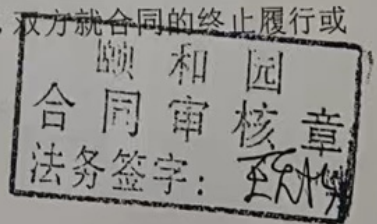 ，双方就合同的终止履行或
颐和园
合同审核章
法务签字：